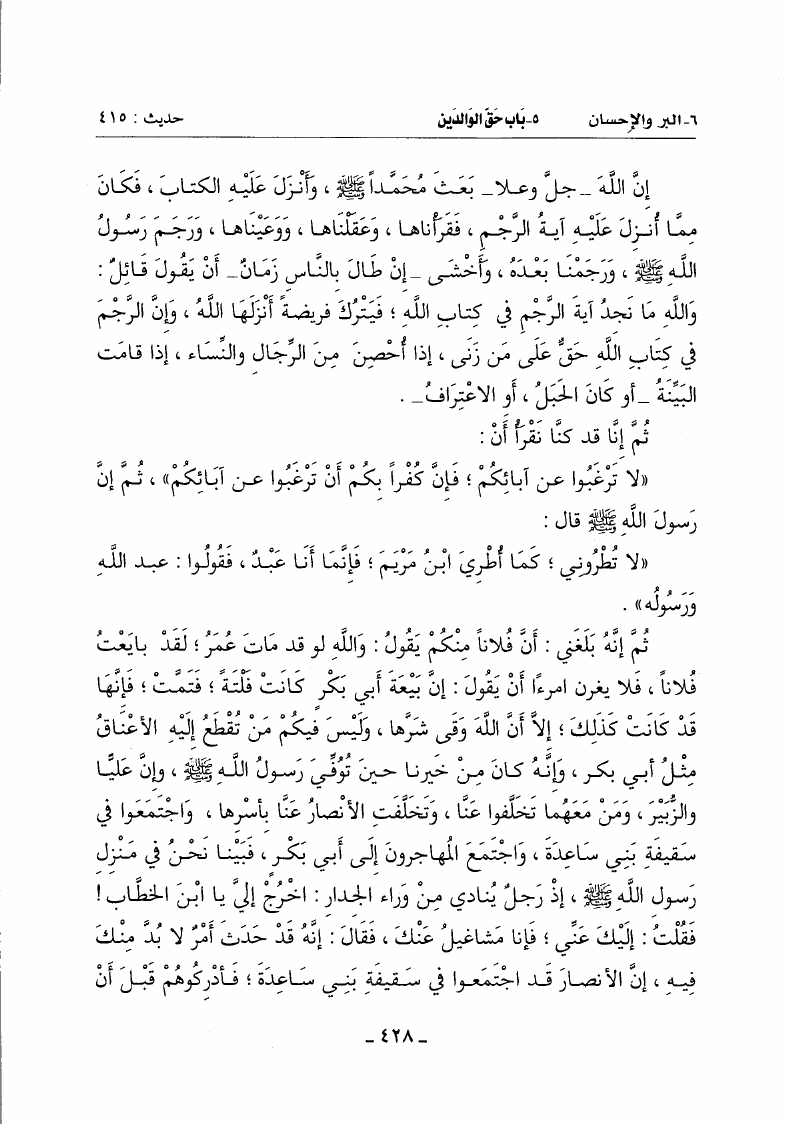 ٦-البر والإحسان ٥-بَاب حَقّ الوَالدَين حديث : ٤١٥
إنَّ اللَّهَ _ جلَّ وعلا _ بَعَثَ مُحَمَّداً ﷺ ، وَأَنْزَلَ عَلَيْهِ الكتابَ ، فَكَانَ
مِمَّا أُنزِلَ عَلَيْهِ آيةُ الرَّجْمِ ، فَقَرَأْناها ، وَعَقَلْنَاها ، وَوَعَيْناها ، وَرَجَمَ رَسُولُ
اللَّهِ ﷺ ، وَرَجَمْنَا بَعْدَهُ ، وَأَخْشَى _ إنْ طَالَ بالنَّاسِ زمَانٌ _ أنْ يَقُولَ قَائِلٌ :
وَاللَّهِ مَا نَجِدُ آيةَ الرَّجْمِ في كِتابِ اللَّهِ ؛ فَيَتْرُكَ فريضةً أَنْزَلَهَا اللَّهُ ، وَإنَّ الرَّجْمَ
في كِتَابِ اللَّهِ حَقٌّ عَلَى مَن زَنَى ، إذا أُحْصِنَ مِنَ الرِّجَال والنِّسَاء ، إذا قامَت
البَيِّنَةُ _ أو كَانَ الحَبَلُ ، أو الاعْتِرَافُ _ .
ثُمَّ إنَّا قد كنَّا نَقْرَأُ أَنْ :
«لا تَرْغَبُوا عن آبائِكُمْ ؛ فإنَّ كُفْراً بِكُم أنْ تَرْغَبُوا عن آبَائِكُم» ، ثُمَّ إنَّ
رَسولَ اللَّهِ ﷺ قال :
«لا تُطْرُوني ؛ كمَا أُطْرِيَ ابْنُ مَرْيَم ؛ فإنَّمَا أنَا عَبْدٌ ، فَقُولُوا : عبد اللَّهِ
وَرَسُولُه» .
ثُمَّ إنَّهُ بَلَغَني : أنَّ فُلاناً مِنكُم يَقُولُ : وَاللَّهِ لو قد مَاتَ عُمَرُ ؛ لَقَدْ بايَعْتُ
فُلاناً ، فَلا يغرن امرءًا أنْ يَقُولَ : إنَّ بَيْعَةَ أبي بَكْرٍ كَانَتْ فَلْتَةً ؛ فَتَمَّتْ ؛ فَإنَّهَا
قَدْ كَانَتْ كَذلِكَ ؛ إلاَّ أنَّ اللَّهَ وَقَى شَرَّها ، وَلَيْسَ فيكُمْ مَنْ تُقْطَعُ إلَيْهِ الأعْنَاقُ
مِثْلُ أبي بكر ، وَإنَّهُ كانَ مِنْ خَيرنا حينَ تُوُفِّيَ رَسولُ اللَّهِ ﷺ ، وإنَّ عَليًّا
والزُّبَيْرَ ، وَمَنْ مَعَهُما تَخلَّفوا عَنَّا ، وَتَخلَّفَت الأنْصارُ عَنَّا بأسْرِها ، وَاجْتَمَعوا في
سَقيفةِ بَنِي سَاعِدَة ، وَاجْتَمَعَ المُهاجرونَ إلَى أبي بَكْرٍ ، فَبَيْنا نَحْنُ في مَنْزِلِ
رَسول اللَّهِ ﷺ ، إذْ رَجلٌ يُنادي مِنْ وَراء الجدار : اخْرُجْ إليَّ يا ابْنَ الخطَّابِ !
فَقُلْتُ : إلَيْكَ عَنِّي ؛ فإنا مَشاغيلُ عَنْكَ ، فَقَالَ : إنَّهُ قَدْ حَدَثَ أمْرٌ لا بُدَّ مِنْكَ
فِيهِ ، إنَّ الأنصارَ قَد اجتَمَعوا في سَقيفَةِ بَنِي سَاعِدَةَ ؛ فَأدْرِكُوهُمْ قَبْلَ أنْ
_ ٤٢٨ _